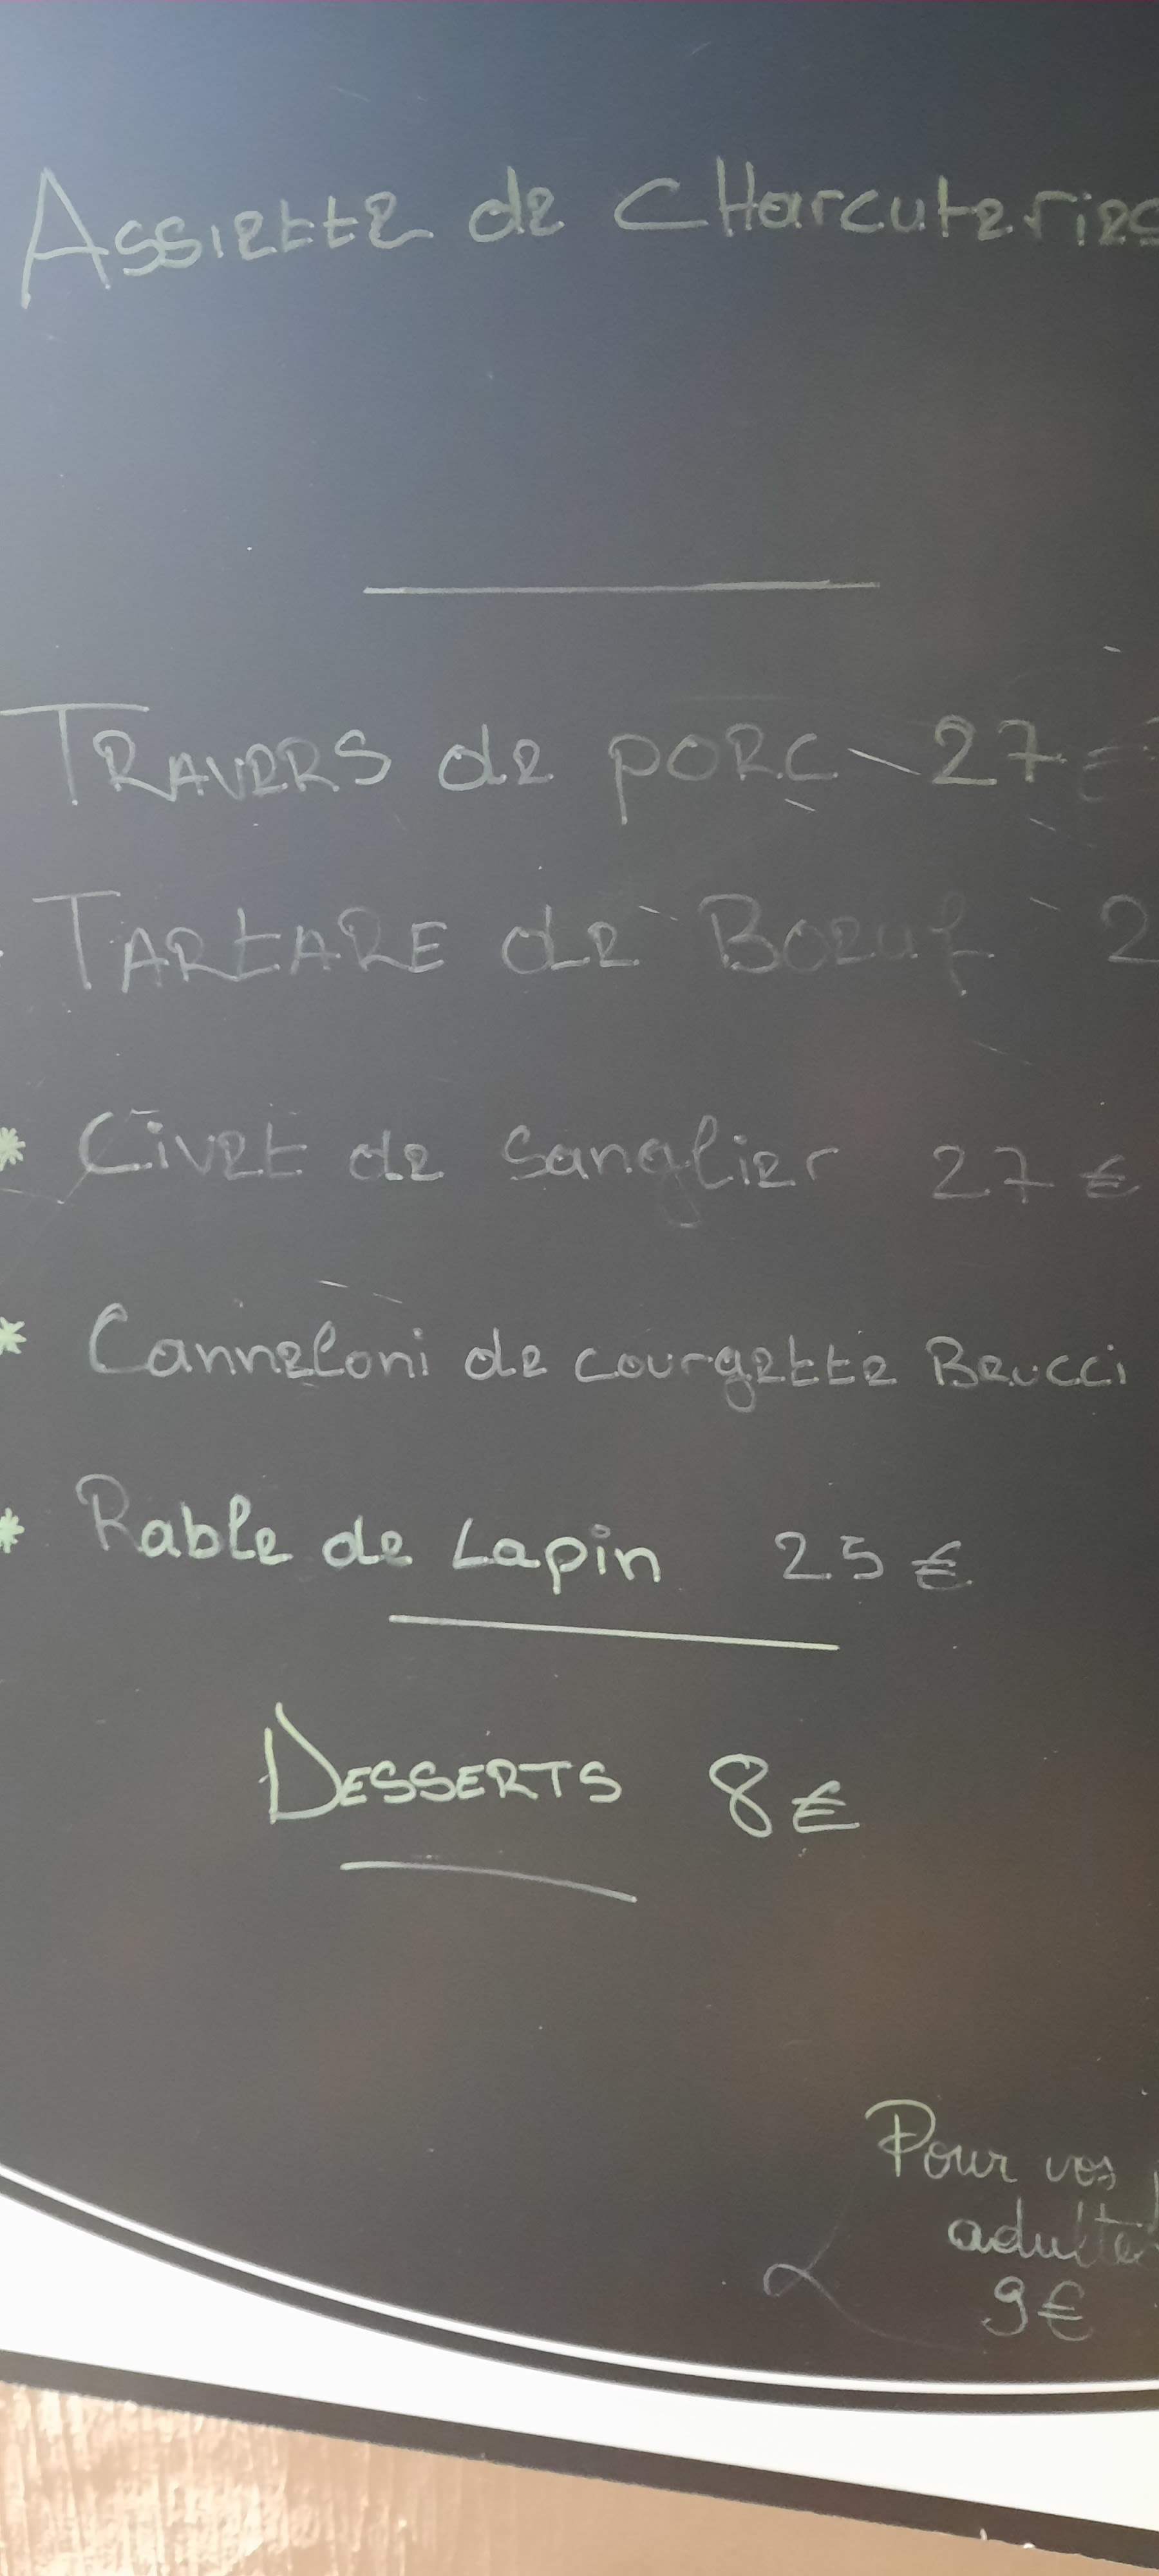 Assiette de CHarcuteries
Travers de porc - 27 €
Tartare de Boeuf - 2
* Civet de sanglier 27 €
* Canneloni de courgette Brucci
* Rable de Lapin 25 €
DESSERTS 8 €
Pour vos
adulte
9 €